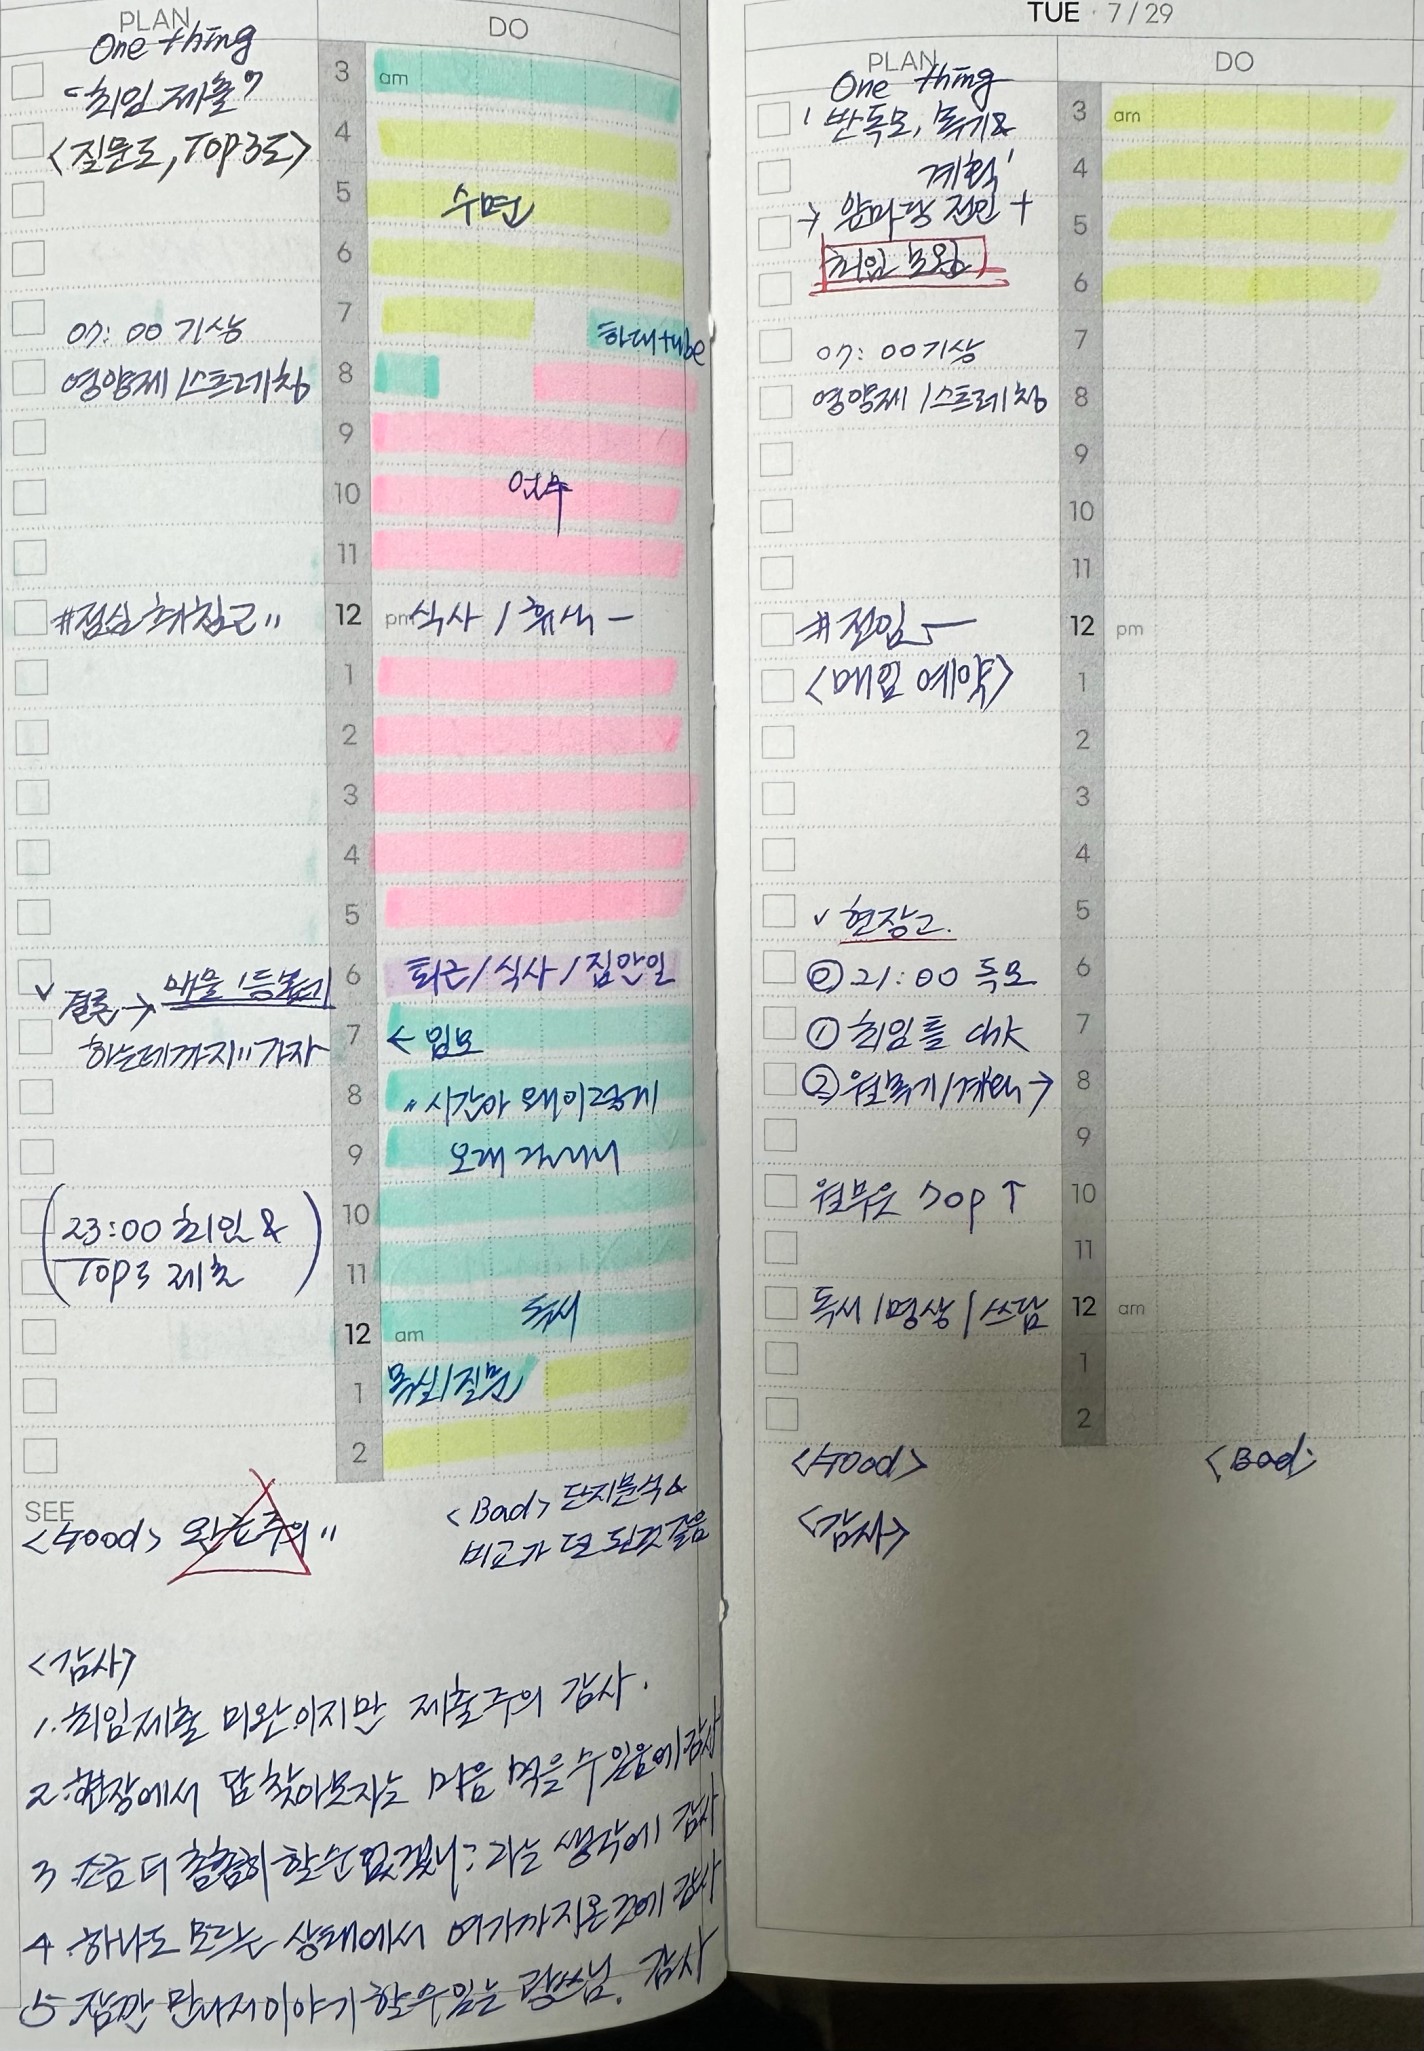 PLAN
DO
One thing
"최임 제출"
<질문도, TOP3도>
3 am
4
5 수면
6
7
07:00 기상
하대tube
영양제/스트레칭
8
9
10 업무
11
#점심
12 pm 식사 / 휴식 -
1
2
3
4
5
6 퇴근/식사/집안일
∨ 결론 → 매물 1등뽑기
7 ← 임보
하는데까지" 가자
8 " 시간아 왜이렇게
9 오래 걸리니
10
(23:00 최임&
11
TOP3 제출)
12 am 독서
1 목실/질문
2
SEE
<Good> 완료주의"
<Bad> 단지분석&
비교가 덜 된것 같음
<감사>
1. 최임제출 미완이지만 제출주의 감사.
2. 현장에서 답 찾아보자는 마음 먹을수있음에 감사
3. 조금 더 촘촘히 할순없겠니? 라는 생각에 감사
4. 하나도 모르는 상태에서 여기까지온것에 감사
5. 잠깐 만나서이야기할수있는 님. 감사
TUE · 7 / 29
PLAN
DO
One thing
' 반독모, 복기&
계획'
→ 앞마당 전임 +
최임 보완
3 am
4
5
6
07:00 기상
7
영양제/스트레칭
8
9
10
11
#전임
12 pm
<매임 예약>
1
2
3
4
∨ 현장고.
5
⓪ 21:00 독모
6
① 최임 틀 chk
7
② 월복기/계획 →
8
9
월부은 Top ↑
10
11
독서/명상/쓰담
12 am
1
2
<Good>
<Bad>
<감사>